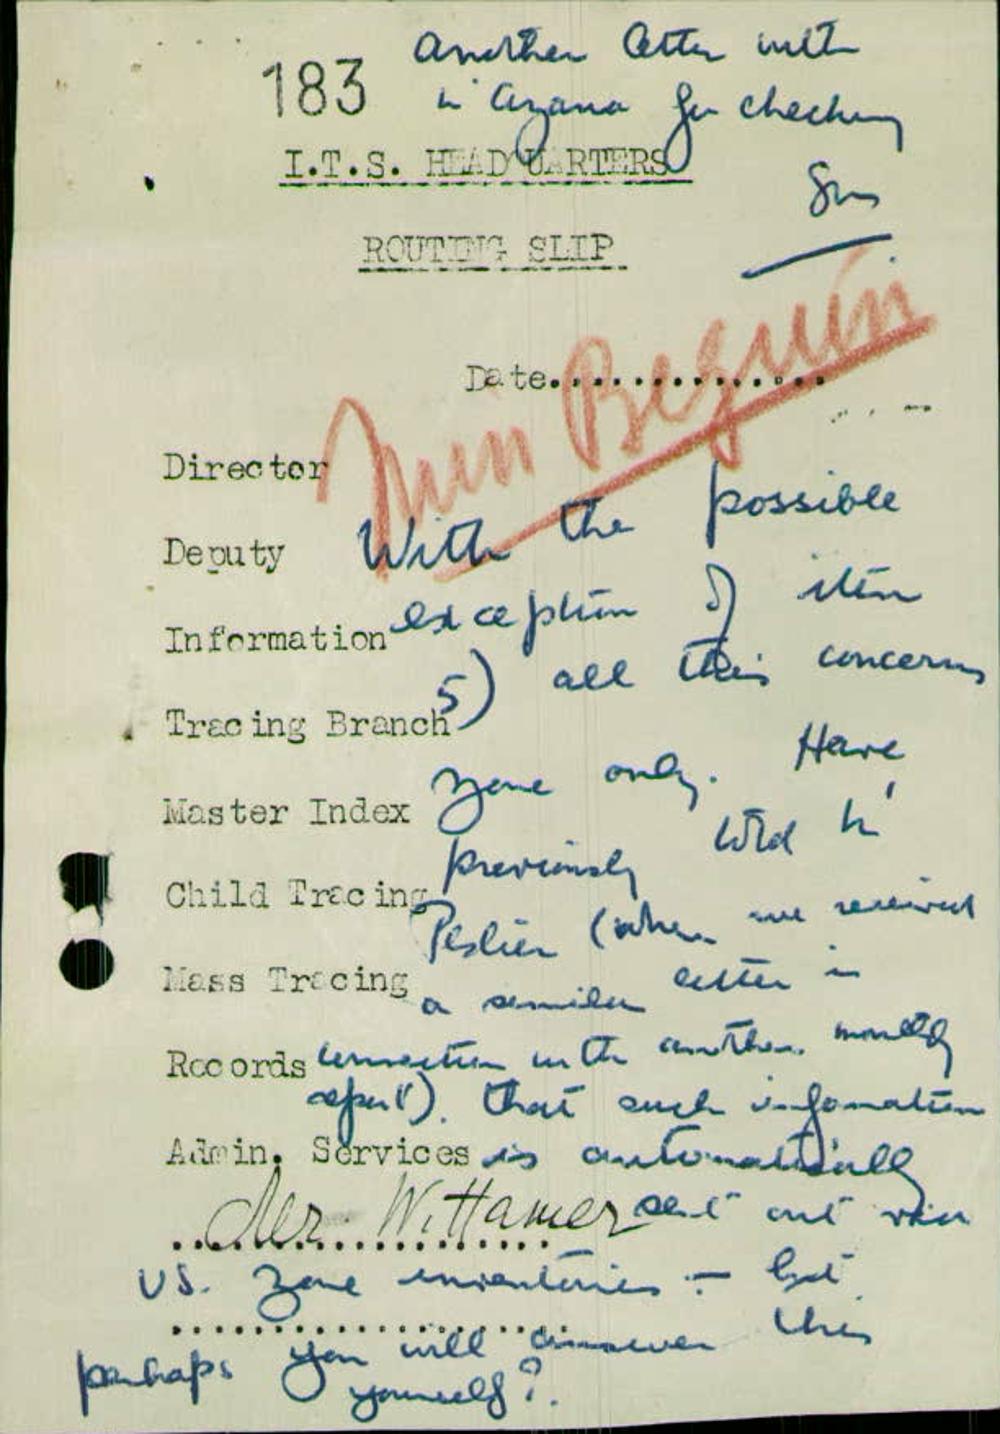 183
Another letter with
in for checking
I.T.S. HEADQUARTERS
ROUTING SLIP
Date...............
Miss Beguin
Director
Deputy
With the possible
Information
exception of item
Tracing Branch
5) all this concerns
Master Index
zone only. Have
previously told
Child Tracing
Peslier (when we received
Mass Tracing
a similar letter in
Records
connection with another monthly
report). that such information
Admin. Services
is automatically
Mr. Wittamer
sent out via
US. zone inventories - but
perhaps you will answer this
yourself?.